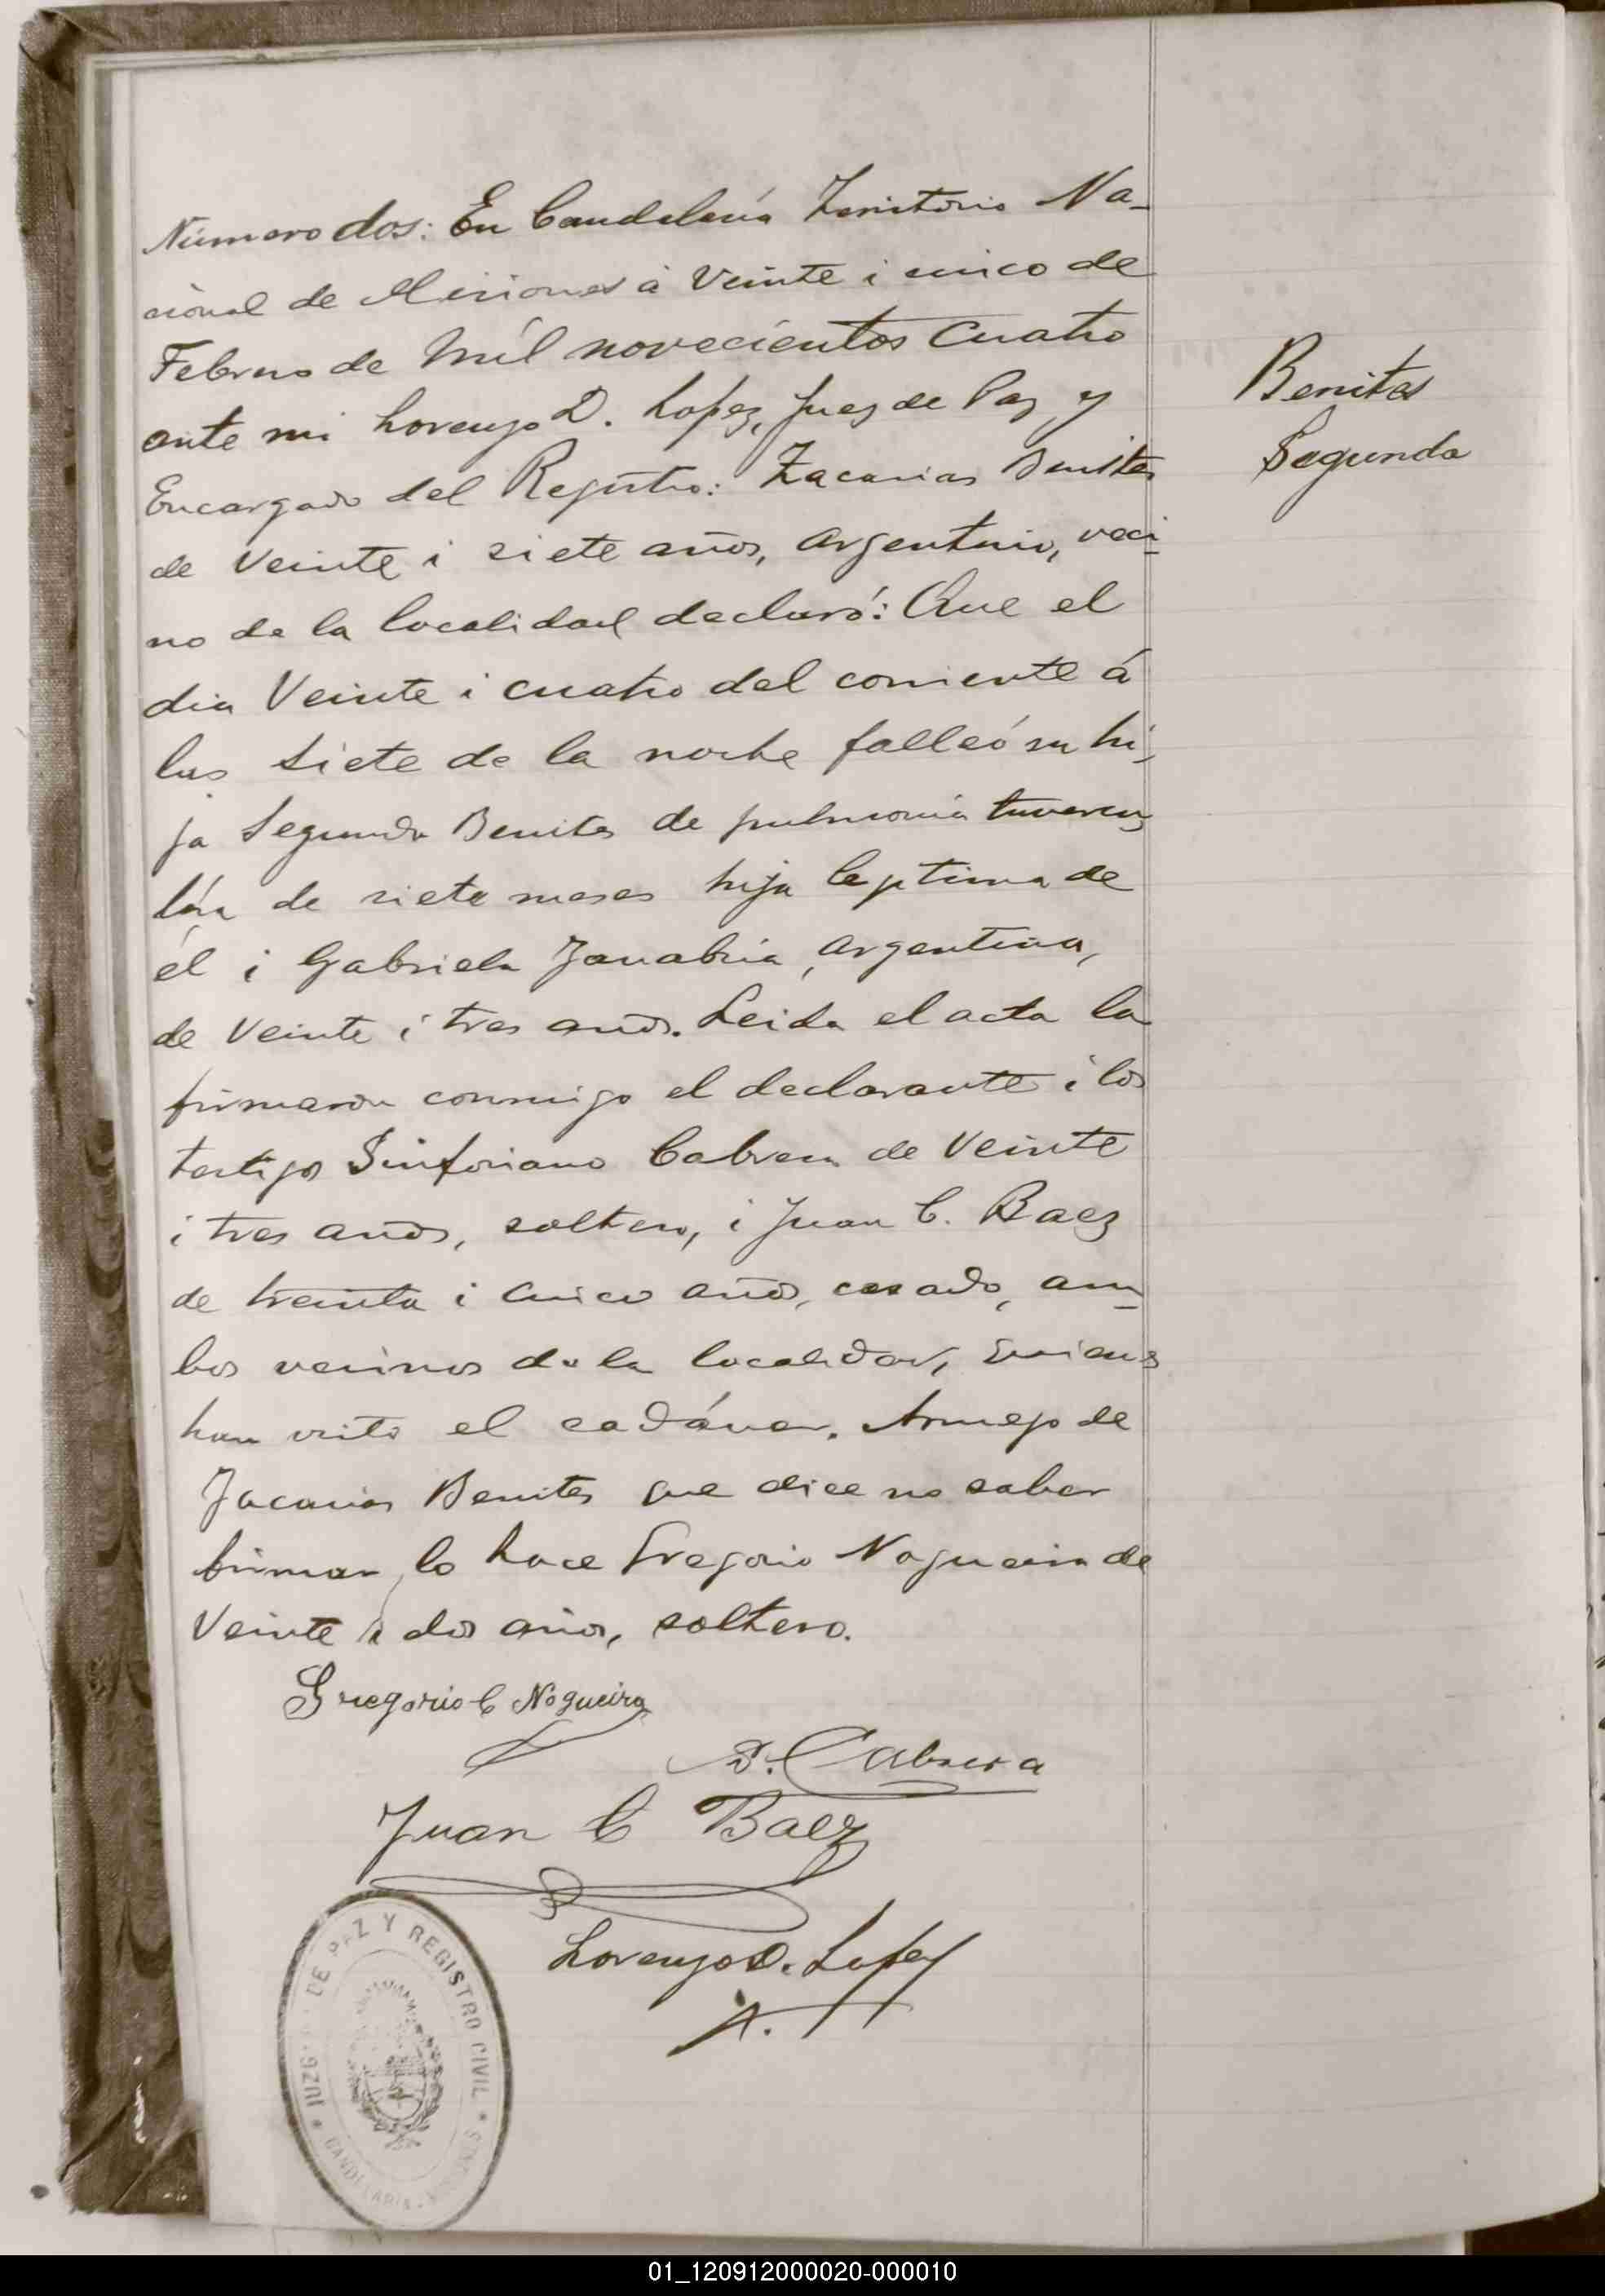 Número dos: En Candelaria Territorio Na-
cional de Misiones á Veinte i cinco de
Febrero de Mil novecientos Cuatro
ante mi Lorenzo D. Lopez, Juez de Paz y
Encargado del Registro: Zacarias Benites
de Veinte i siete años, argentino, veci-
no de la localidad declaró: Que el
dia Veinte i cuatro del corriente á
las siete de la noche falleció su hi-
ja Segunda Benites de pulmonia
de siete meses hija legitima de
él i Gabriela Zanabria, argentina,
de Veinte i tres años. Leida el acta la
firmaron conmigo el declarante i los
testigos Sinforiano Cabrera de Veinte
i tres años, soltero, i Juan C. Baez
de treinta i cinco años, casado, am-
bos vecinos de la localidad, quienes
han visto el cadáver. A ruego de
Zacarias Benites que dice no saber
firmar, lo hace Gregorio Nogueira de
Veinte i dos años, soltero.
Gregorio C Nogueira
S. Cabrera
Juan C Baez
Lorenzo D. Lopez
Benites
Segunda
JUZGADO DE PAZ Y REGISTRO CIVIL
CANDELARIA
01_120912000020-000010